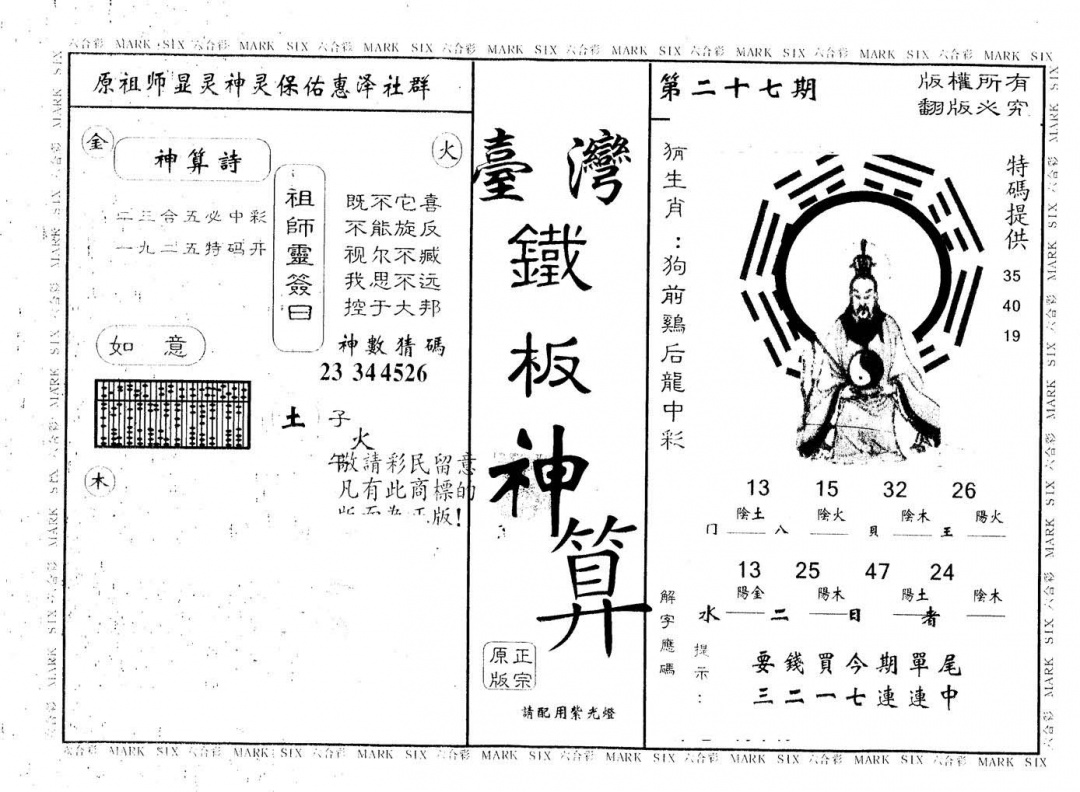 六合彩 MARK SIX 六合彩 MARK SIX 六合彩 MARK SIX 六合彩 MARK SIX 六合彩 MARK SIX 六合彩 MARK SIX 六合彩 MARK SIX 六合彩 MARK SIX
原祖师显灵神灵保佑惠泽社群
金
火
神算詩
二三合五必中彩
一九二五特码开
祖師靈簽曰
既不它喜
不能旋反
视尔不臧
我思不远
控于大邦
如意
神數猜碼
23 344526
土
子
火
午敬請彩民留意
凡有此商標的
版!
木
臺灣
鐵
板
神
算
正宗
原版
請配用紫光燈
第二十七期
版權所有
翻版必究
猜生肖:狗前鷄后龍中彩
特碼提供
35
40
19
13 15 32 26
陰土 陰火 陰木 陽火
门 八 貝 王
13 25 47 24
陽金 陽木 陽土 陰木
水 二 日 者
解字應碼
提示:
要錢買今期單尾
三二一七連連中
六合彩 MARK SIX 六合彩 MARK SIX 六合彩 MARK SIX 六合彩 MARK SIX 六合彩 MARK SIX 六合彩 MARK SIX 六合彩 MARK SIX 六合彩 MARK SIX